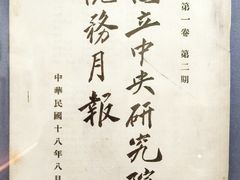 第一卷 第二期
國立中央研究院
院務月報
中華民國十八年八月